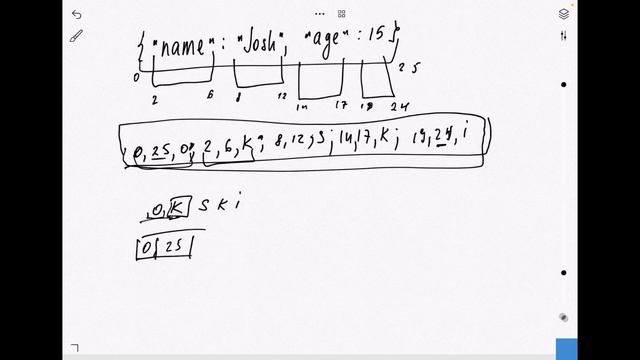 {"name": "Josh", "age": 15}
0 2 6 8 12 14 17 19 24 25
0, 25, 0; 2, 6, K; 8, 12, S; 14, 17, K; 19, 24, i
, 0, K S K i
0 25